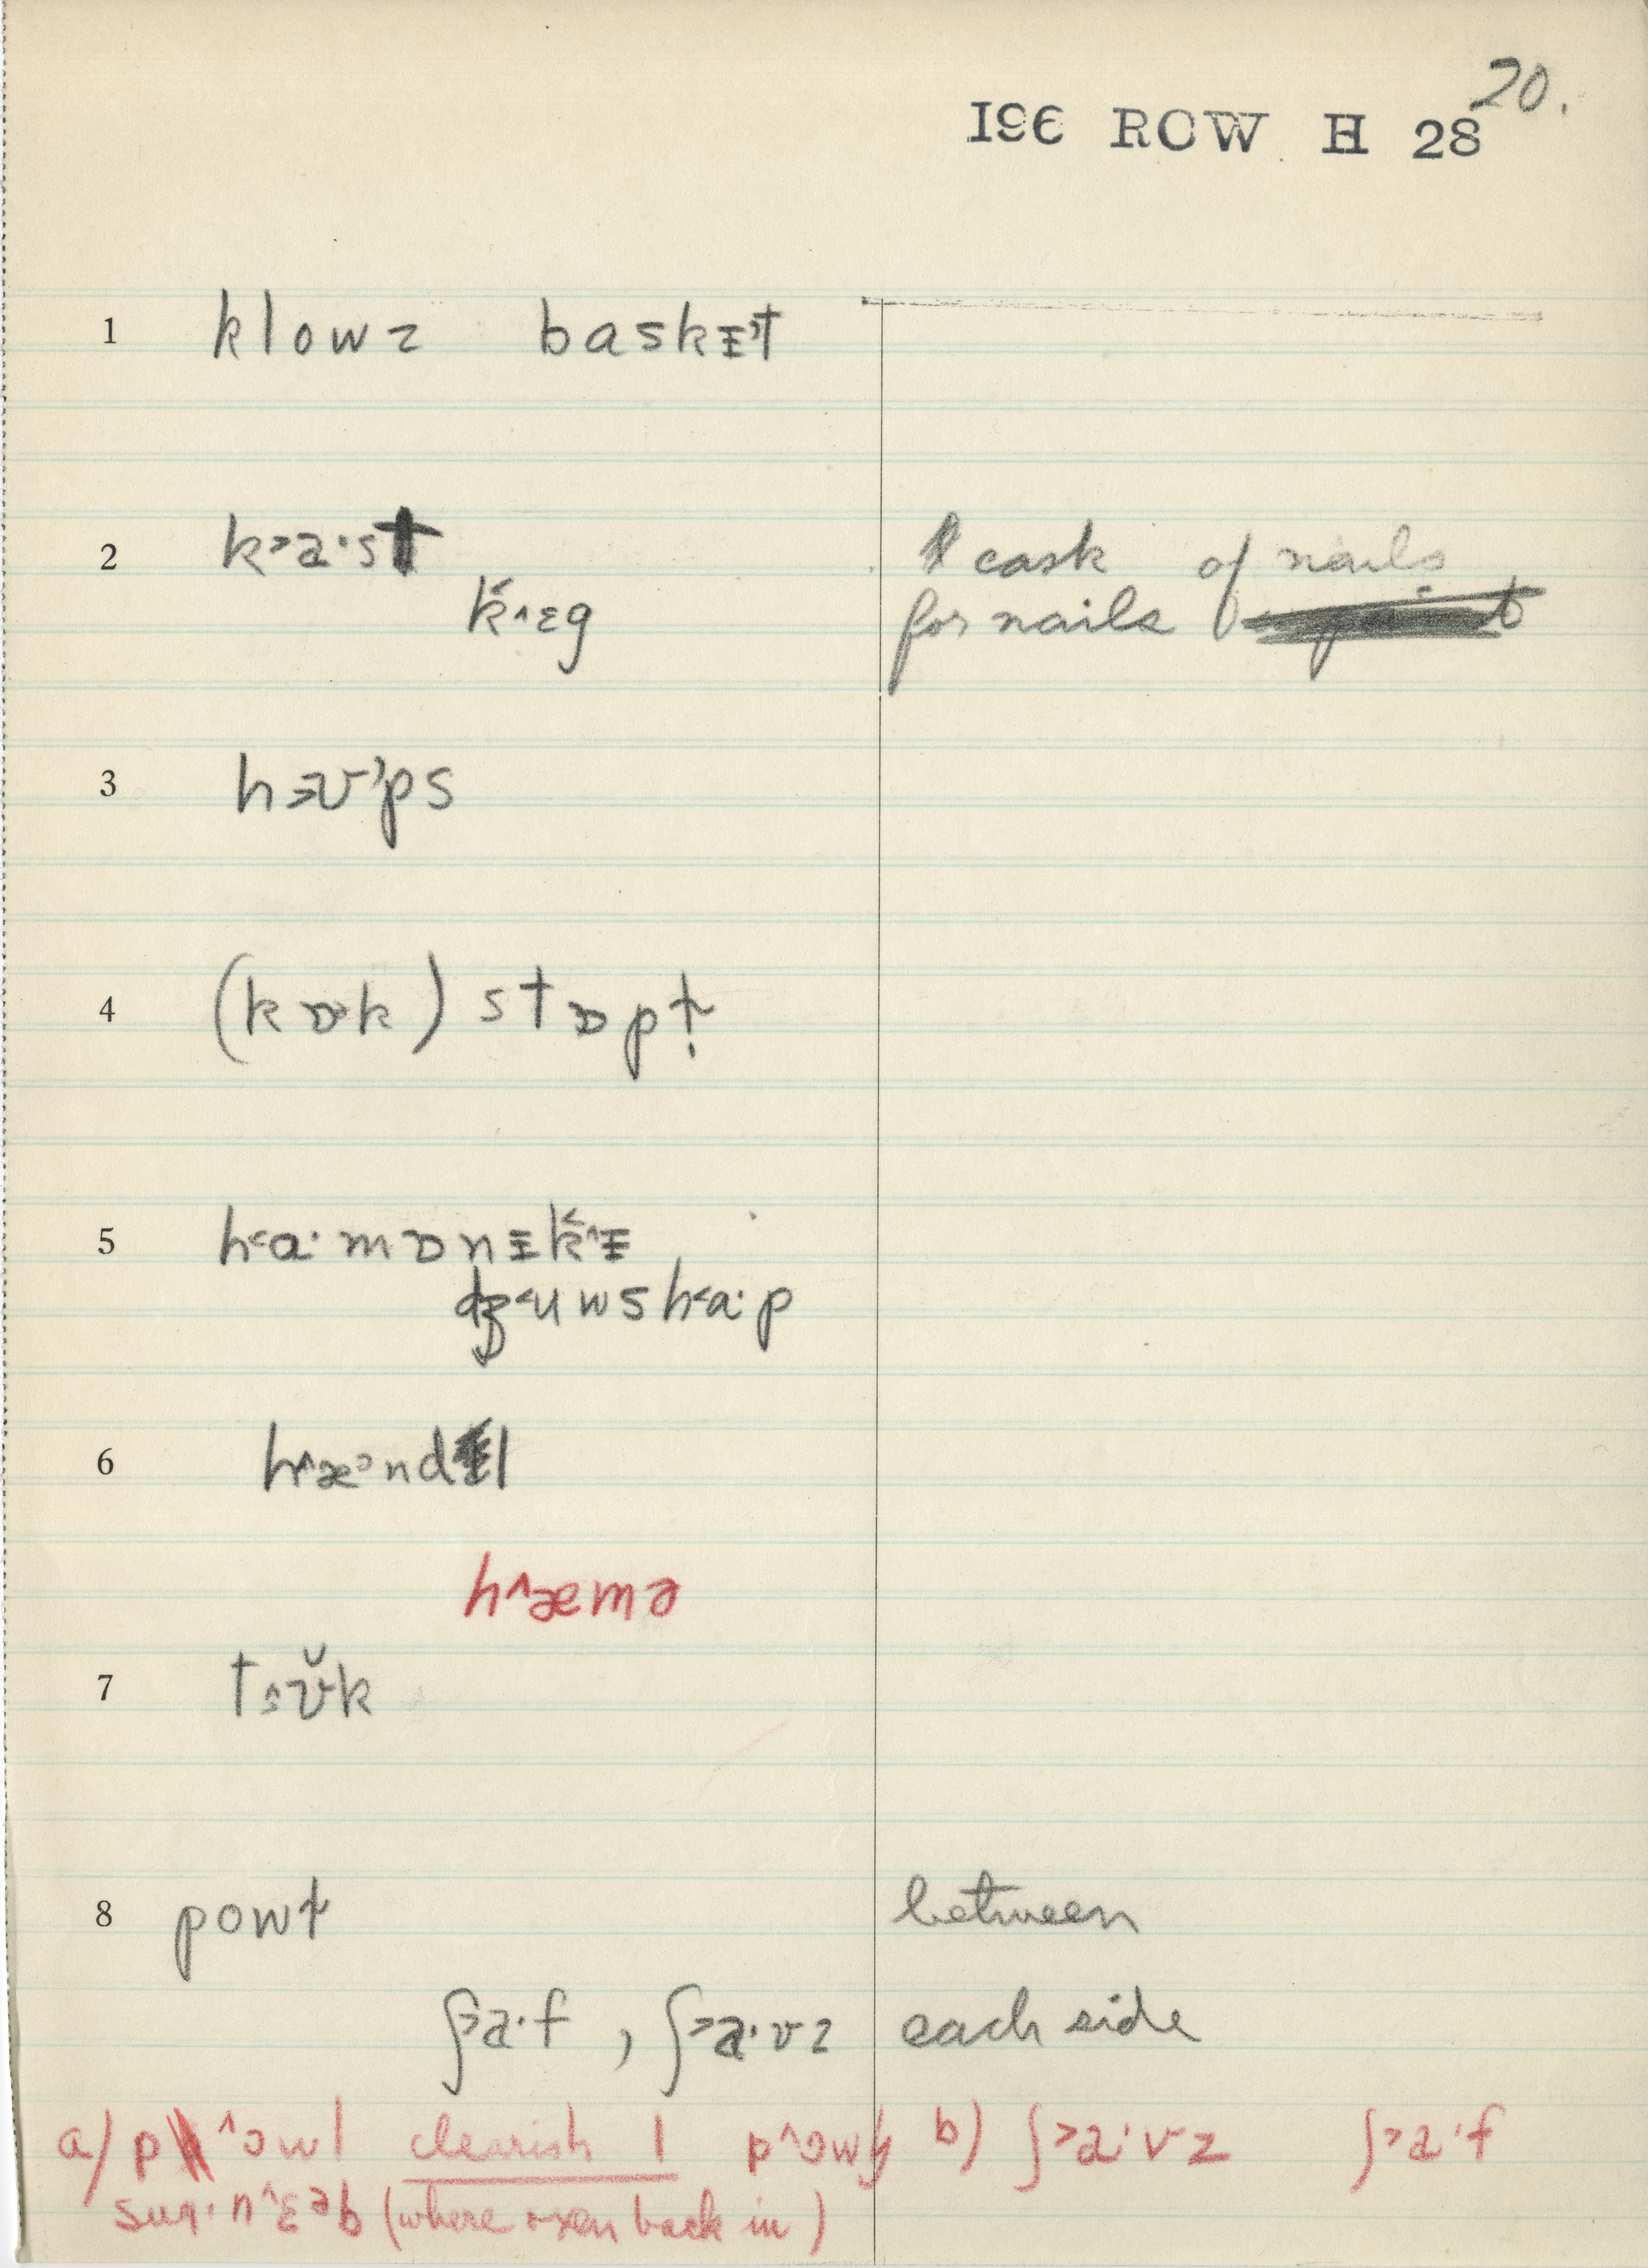 20.
196 ROW H 28
1 klowz baskᵻt
2 k˃a·st cask of nails
k̬˄ɛg for nails
3 hʊps
4 (kɒ˃k) stɒpt
5 h˂a·mɒnᵻk̬˄ᵻ
dʒ˂uwsh˂a·p
6 h˄æ˃ndl
h˄æmə
7 tʊ̆k
8 powt between
ʃ˃a·f , ʃ˃a·vz each side
a/ p˄owl clearish l b) ʃ˃a·vz ʃ˃a·f
n˄ɛəb (where oxen back in)